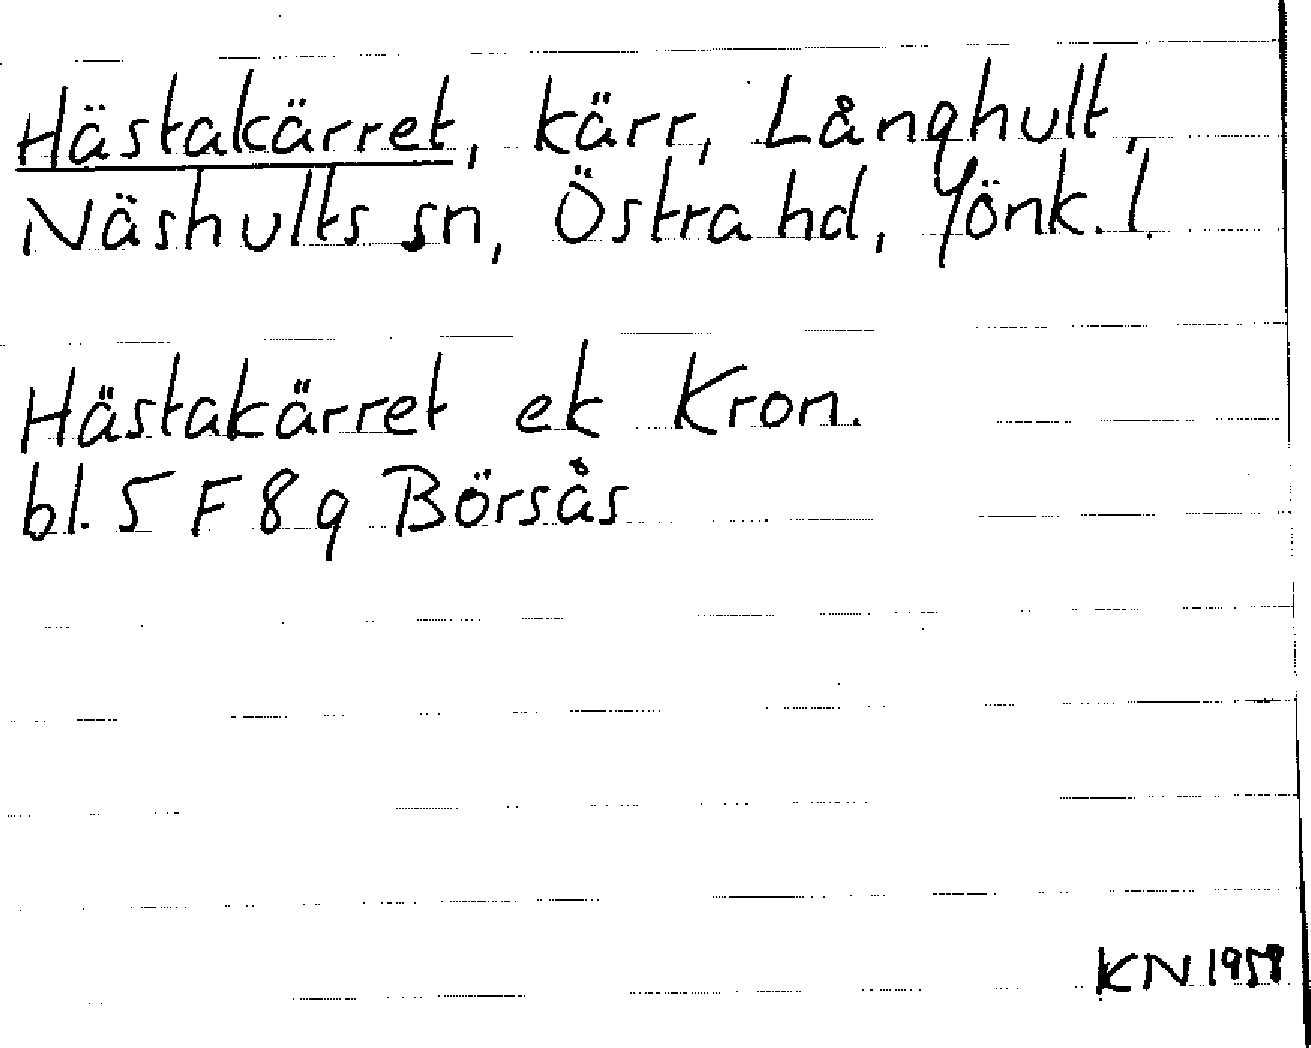 Hästakärret, kärr, Långhult,
Näshults sn, Östra hd, Jönk. l.
Hästakärret ek Kron.
bl. 5 F 8 g Börsås
KN 1959